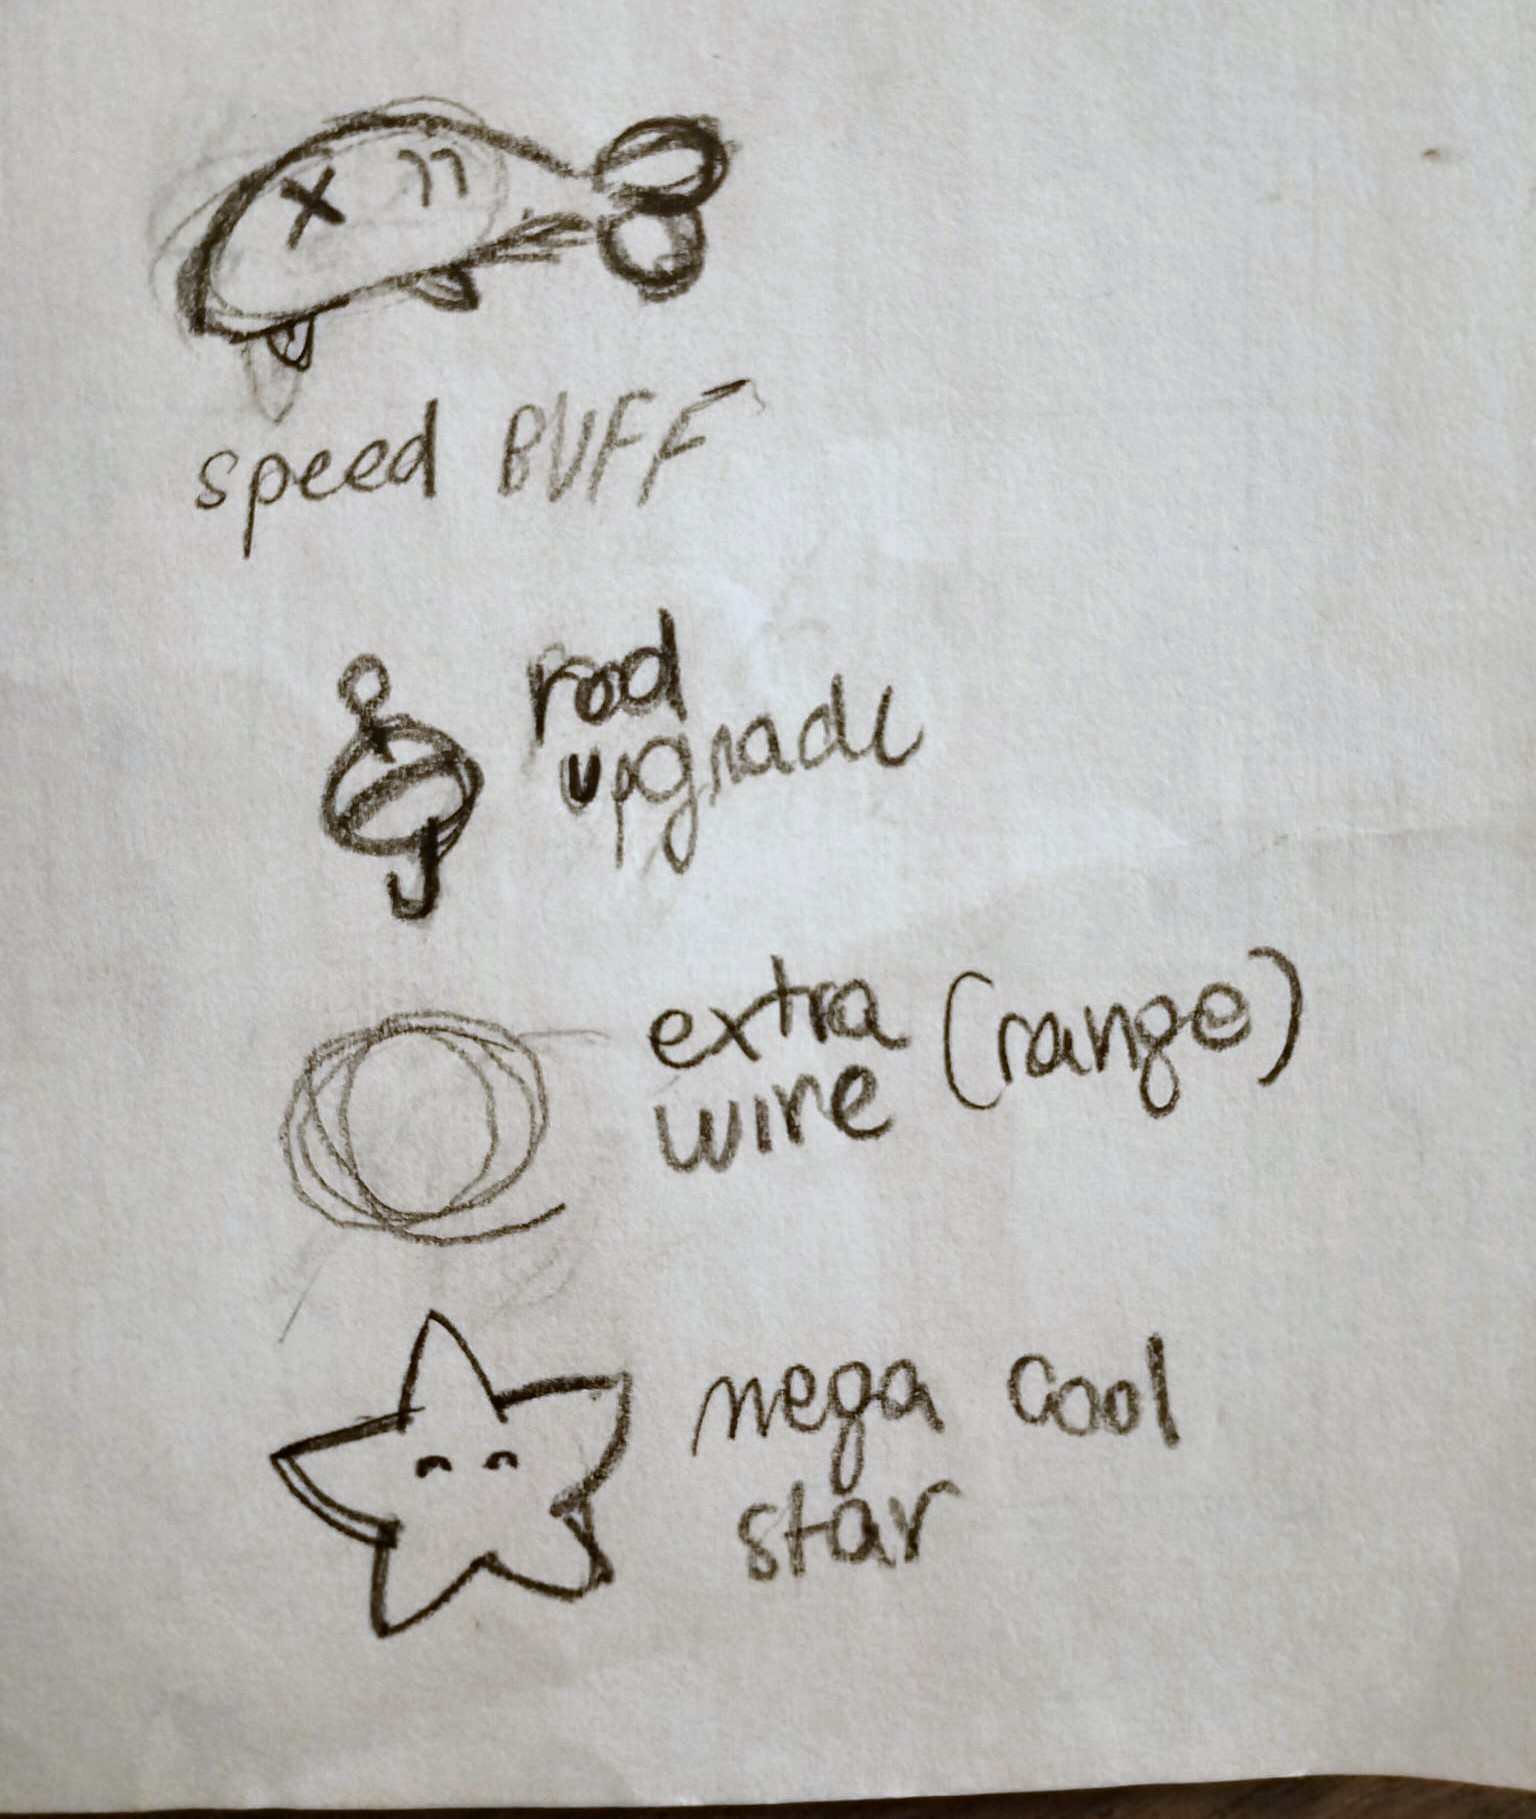 speed BUFF
rod
upgrade
extra (range)
wire
mega cool
star